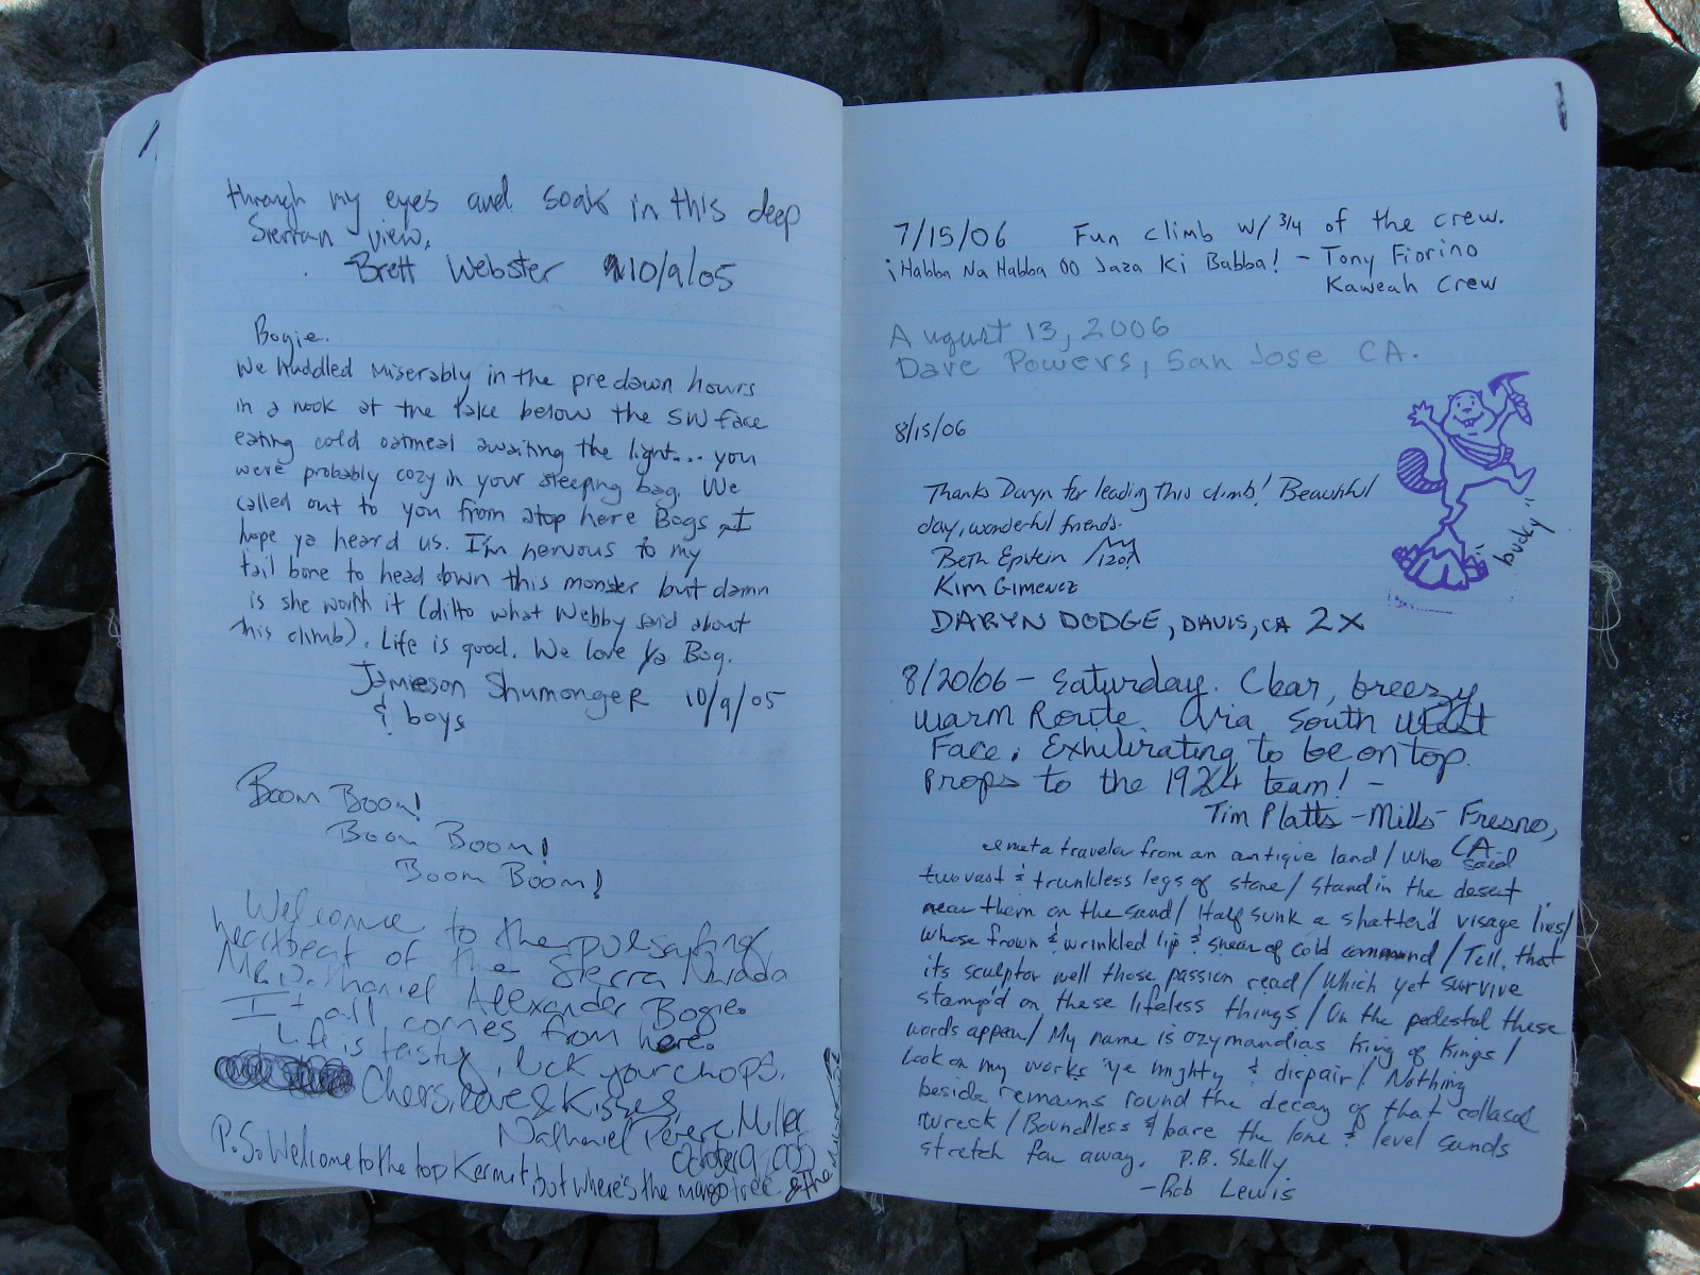 through my eyes and soak in this deep
Sierran view.
Brett Webster 10/9/05
Bogie.
We huddled miserably in the predawn hours
in a nook at the lake below the SW face
eating cold oatmeal awaiting the light... you
were probably cozy in your sleeping bag. We
called out to you from atop here Bogs I
hope ya heard us. I'm nervous to my
tail bone to head down this monster but damn
is she worth it (ditto what Webby said about
this climb). Life is good. We love ya Bog.
Jamieson Shumonger 10/9/05
& boys
Boom Boom!
Boom Boom!
Boom Boom!
Welcome to the pulsating
heartbeat of the Sierra Nevada
Alexander Bogie.
It all comes from here.
Life is tasty, lick your chops.
Cheers, Love & Kisses,
Nathaniel Miller
October 9, 2005
P.S. Welcome to the top Kermit, but where's the mango tree & the
7/15/06 Fun climb w/ 3/4 of the crew.
¡Habba Na Habba OO Jaza Ki Babba! - Tony Fiorino
Kaweah Crew
August 13, 2006
Dave Powers, San Jose CA.
8/15/06
Thanks Daryn for leading this climb! Beautiful
day, wonderful friends.
Beth Epstein
Kim Gimenez
DARYN DODGE, DAVIS, CA 2X
"bucky"
8/20/06 - Saturday. Clear, breezy
warm Route via South West
Face. Exhilirating to be on top.
Props to the 1924 team! -
Tim Platts-Mills - Fresno,
CA-
I met a traveler from an antique land / who said
two vast & trunkless legs of stone / Stand in the desert
near them on the sand / Half sunk a shatter'd visage lies /
whose frown & wrinkled lip & snear of cold command / Tell that
its sculptor well those passion read / Which yet survive
stamp'd on these lifeless things / On the pedestal these
words appear / My name is ozymandias King of Kings /
Look on my works 'ye mighty & dispair / Nothing
beside remains round the decay of that collasal
wreck / Boundless & bare the lone & level sands
stretch far away. P.B. Shelly
- Rob Lewis